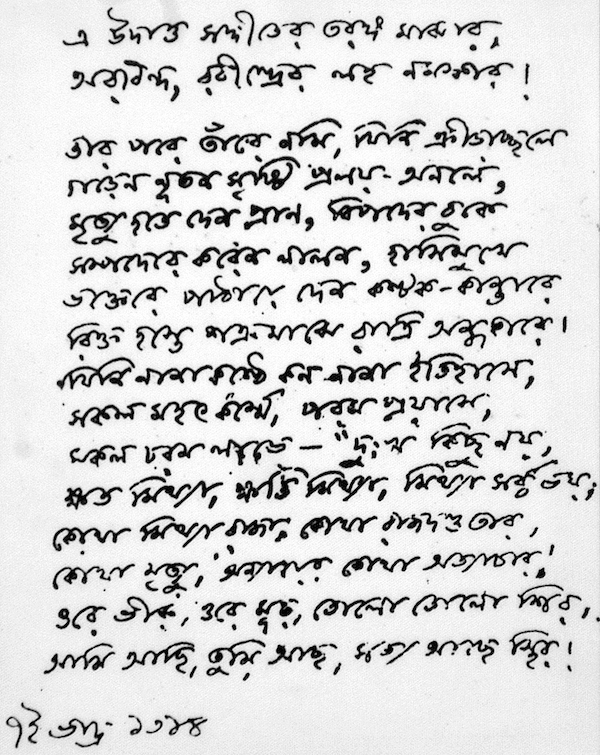 এ উদাত্ত সঙ্গীতের তরঙ্গ মাঝার,
অরবিন্দ, রবীন্দ্রের লহ নমস্কার!
তার পরে তাঁরে নমি, যিনি ক্রীড়াচ্ছলে
গড়েন নূতন সৃষ্টি প্রলয়-অনলে,
মৃত্যু হতে দেন প্রাণ, বিপদের বুকে
সম্পদেরে করেন লালন, হাসিমুখে
ভক্তেরে পাঠায়ে দেন কণ্টক-কান্তারে
রিক্ত হস্তে শত্রুমাঝে রাত্রি অন্ধকারে।
যিনি নানা কণ্ঠে কন নানা ইতিহাসে,
সকল মহৎ কর্ম্মে, পরম প্রয়াসে,
সকল চরম লাভে – "দুঃখ কিছু নয়,
ক্ষত মিথ্যা, ক্ষতি মিথ্যা, মিথ্যা সর্ব্ব ভয়;
কোথা মিথ্যা রাজা, কোথা রাজদণ্ড তার,
কোথা মৃত্যু, অন্যায়ের কোথা অত্যাচার!
ওরে ভীরু, ওরে মূঢ়, তোলো তোলো শির,
আমি আছি, তুমি আছ, সত্য আছে স্থির!
৭ই ভাদ্র ১৩১৪